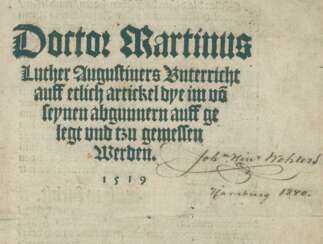 Doctor Martinus
Luther Augustiners Vnterricht
auff etlich artickel dye im võ
seynen abgunnern auff ge
legt vnd tzu gemessen
Werden.
1519
Joh. Hinr. Wohlers
Hamburg 1840.